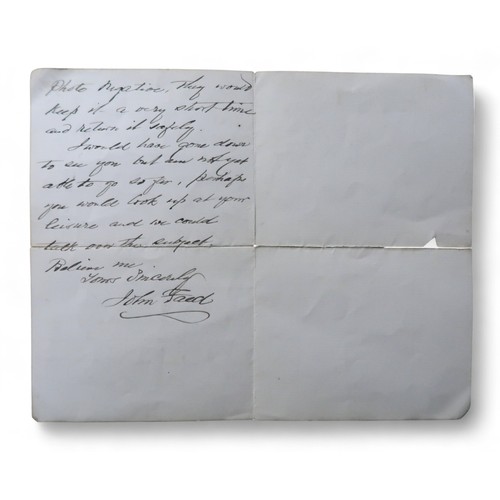 Photo Negative, they would
keep it a very short time
and return it safely.
I would have gone down
to see you but am not yet
able to go so far, perhaps
you would look up at your
leisure and we could
talk over the subject.
Believe me
Yours Sincerely
John Faed